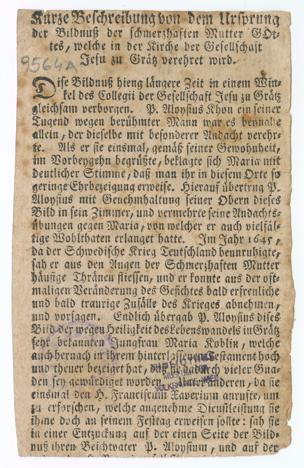 Kurze Beschreibung von dem Ursprung
der Bildnuß der schmerzhaften Mutter GOt-
tes, welche in der Kirche der Gesellschaft
Jesu zu Grätz verehret wird.
9564A
Dise Bildnuß hieng längere Zeit in einem Win-
kel des Collegii der Gesellschaft Jesu zu Grätz
gleichsam verborgen. P. Aloysius Khon ein seiner
Tugend wegen berühmter Mann war es beynahe
allein, der dieselbe mit besonderer Andacht verehr-
te. Als er sie einsmal, gemäß seiner Gewohnheit,
im Vorbeygehn begrüßte, beklagte sich Maria mit
deutlicher Stimme, daß man ihr in diesem Orte so
geringe Ehrbezeigung erweise. Hierauf übertrug P.
Aloysius mit Genehmhaltung seiner Obern dieses
Bild in sein Zimmer, und vermehrte seine Andachts-
übungen gegen Maria, von welcher er auch vielfäl-
tige Wohlthaten erlanget hatte. Im Jahr 1645,
da der Schwedische Krieg Teutschland beunruhigte,
sah er aus den Augen der Schmerzhaften Mutter
häufige Thränen fliessen, und er konnte aus der oft-
maligen Veränderung des Gesichtes bald erfreuliche
und bald traurige Zufälle des Krieges abnehmen,
und vorsagen. Endlich übergab P. Aloysius dises
Bild der wegen Heiligkeit des Lebenswandels in Grätz
sehr bekannten Jungfrau Maria Koblin, welche
auch hernach in ihrem hinterlassenen Testament hoch
und theuer bezeiget hat, daß sie dadurch vieler Gna-
den sey gewürdiget worden, unter anderen, da sie
einsmal den H. Franciscum Xaverium anrufte, um
zu erforschen, welche angenehme Dienstleistung sie
ihme doch an seinem Festtag erweisen sollte: sah sie
in einer Entzückung auf der einen Seite der Bild-
nuß ihren Beichtvater P. Aloysium, und auf der